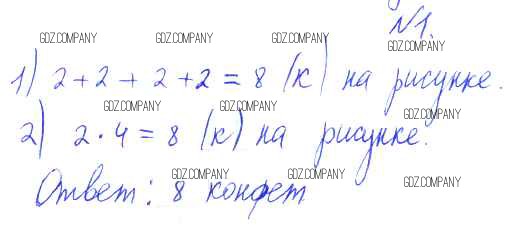 №1.
GDZ.COMPANY GDZ.COMPANY GDZ.COMPANY GDZ.COMPANY
1) 2+2+2+2=8 (к) на рисунке.
GDZ.COMPANY GDZ.COMPANY GDZ.COMPANY
2) 2·4=8 (к) на рисунке.
GDZ.COMPANY GDZ.COMPANY GDZ.COMPANY
Ответ: 8 конфет